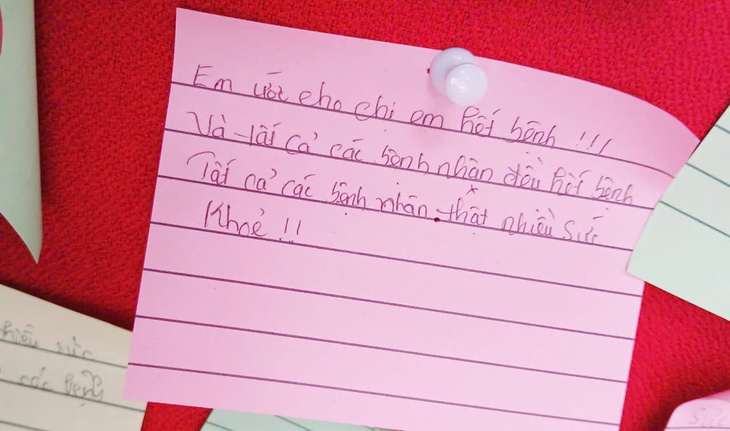 Em ước cho chị em hết bệnh !!!
Và tất cả các bệnh nhân đều hết bệnh
Tất cả các bệnh nhân thật nhiều sức
Khoẻ !!
nhiều sức
các bệnh
sức